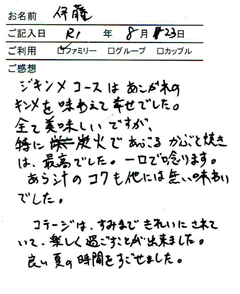 お名前 伊藤
ご記入日 R1 年 8 月 23 日
ご利用 ☑ファミリー □グループ □カップル
ご感想
ジキンメコースはあこがれの
キンメを味わえて幸せでした。
全て美味しいですが、
特に炭火であぶるかぶと焼き
は、最高でした。一口で唸ります。
あら汁のコクも他には無い味わい
でした。
コテージは、すみまできれいにされて
いて、楽しく過ごすことが出来ました。
良い夏の時間をすごせました。